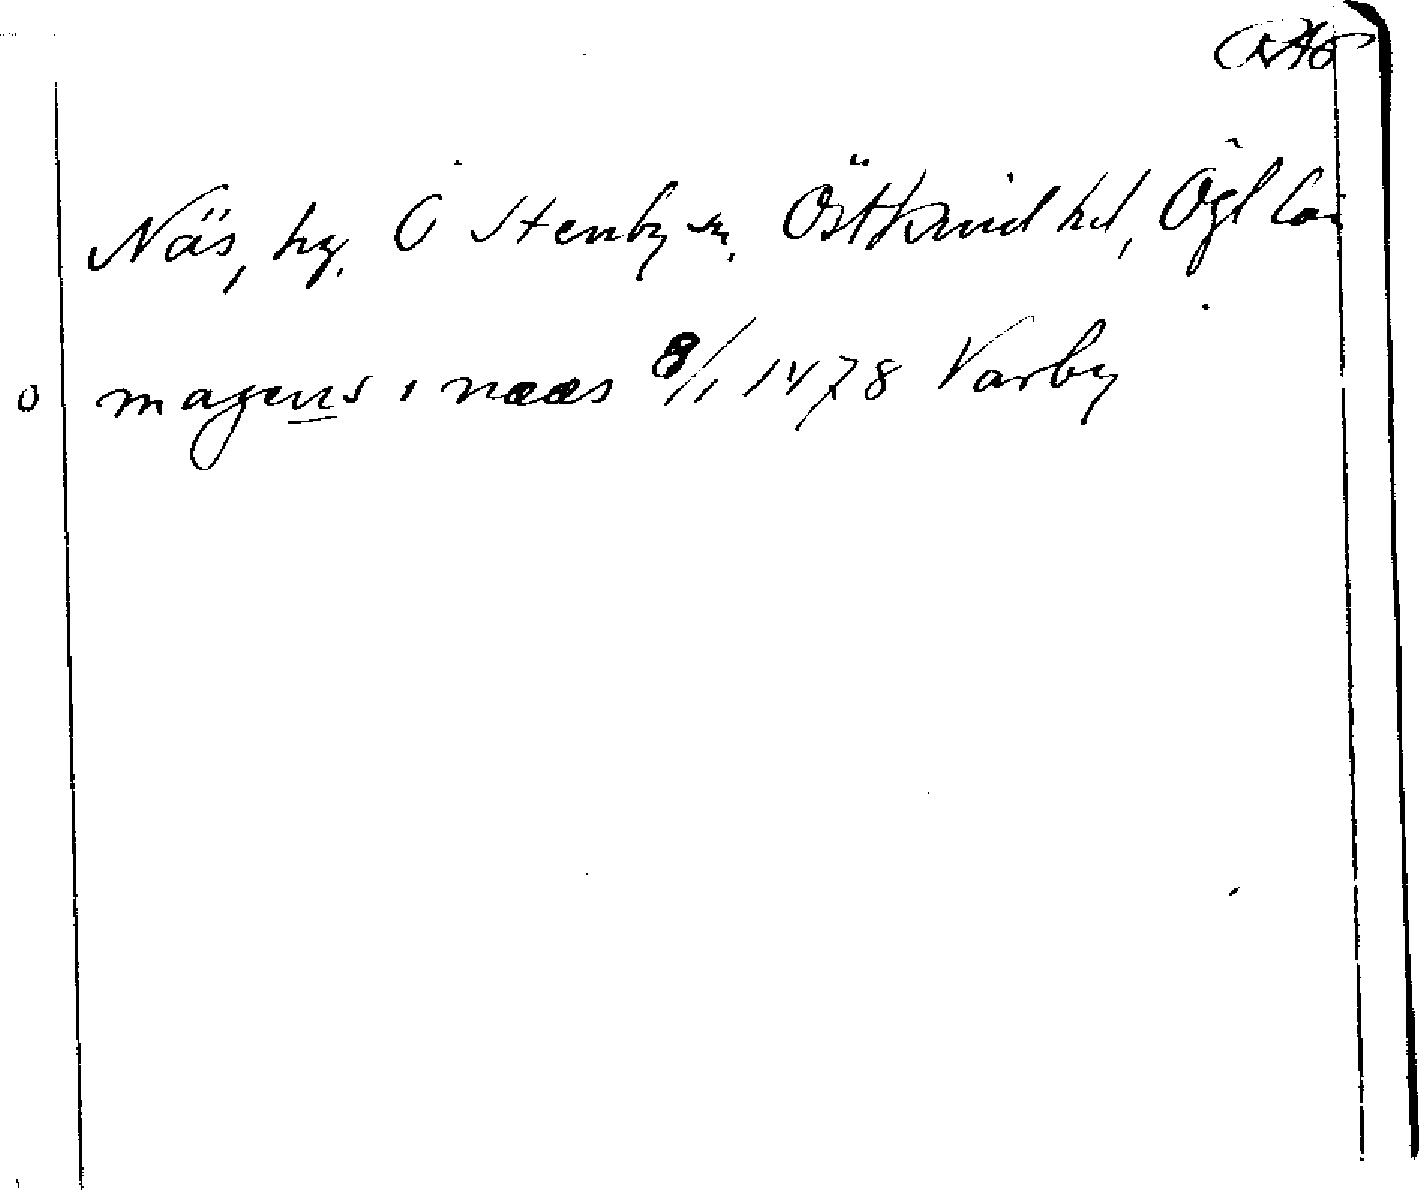 Näs, hg. Ö Stenby sn. Östkind hd, Ögl län
o magens i næs 8/1 1478 Varby